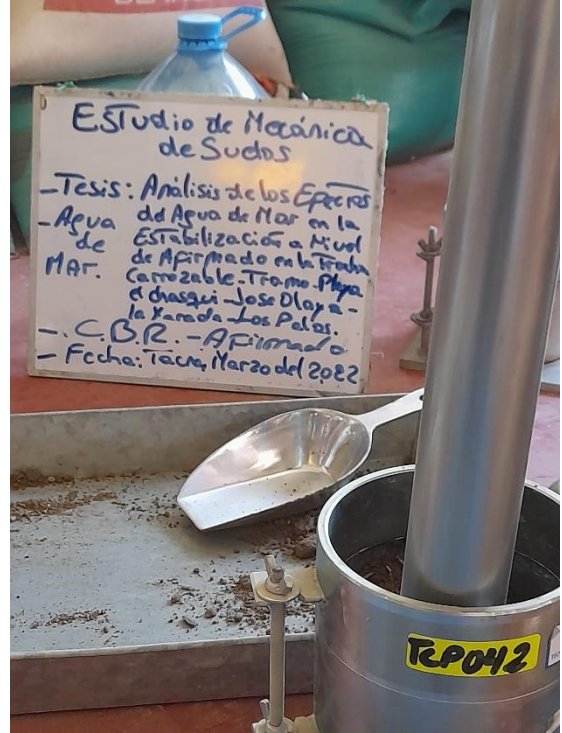 Estudio de Mecánica
de Suelos
- Tesis: Análisis de los Efectos
- Agua de Mar. del Agua de Mar en la
Estabilización a Nivel
de Afirmado en la Trocha
Carrozable. Tramo Playa
el chasqui - Jose Olaya -
la Yarada - Los Palos.
-. C.B.R. - Afirmado
- Fecha: Tacna, Marzo del 2,022
TCP042